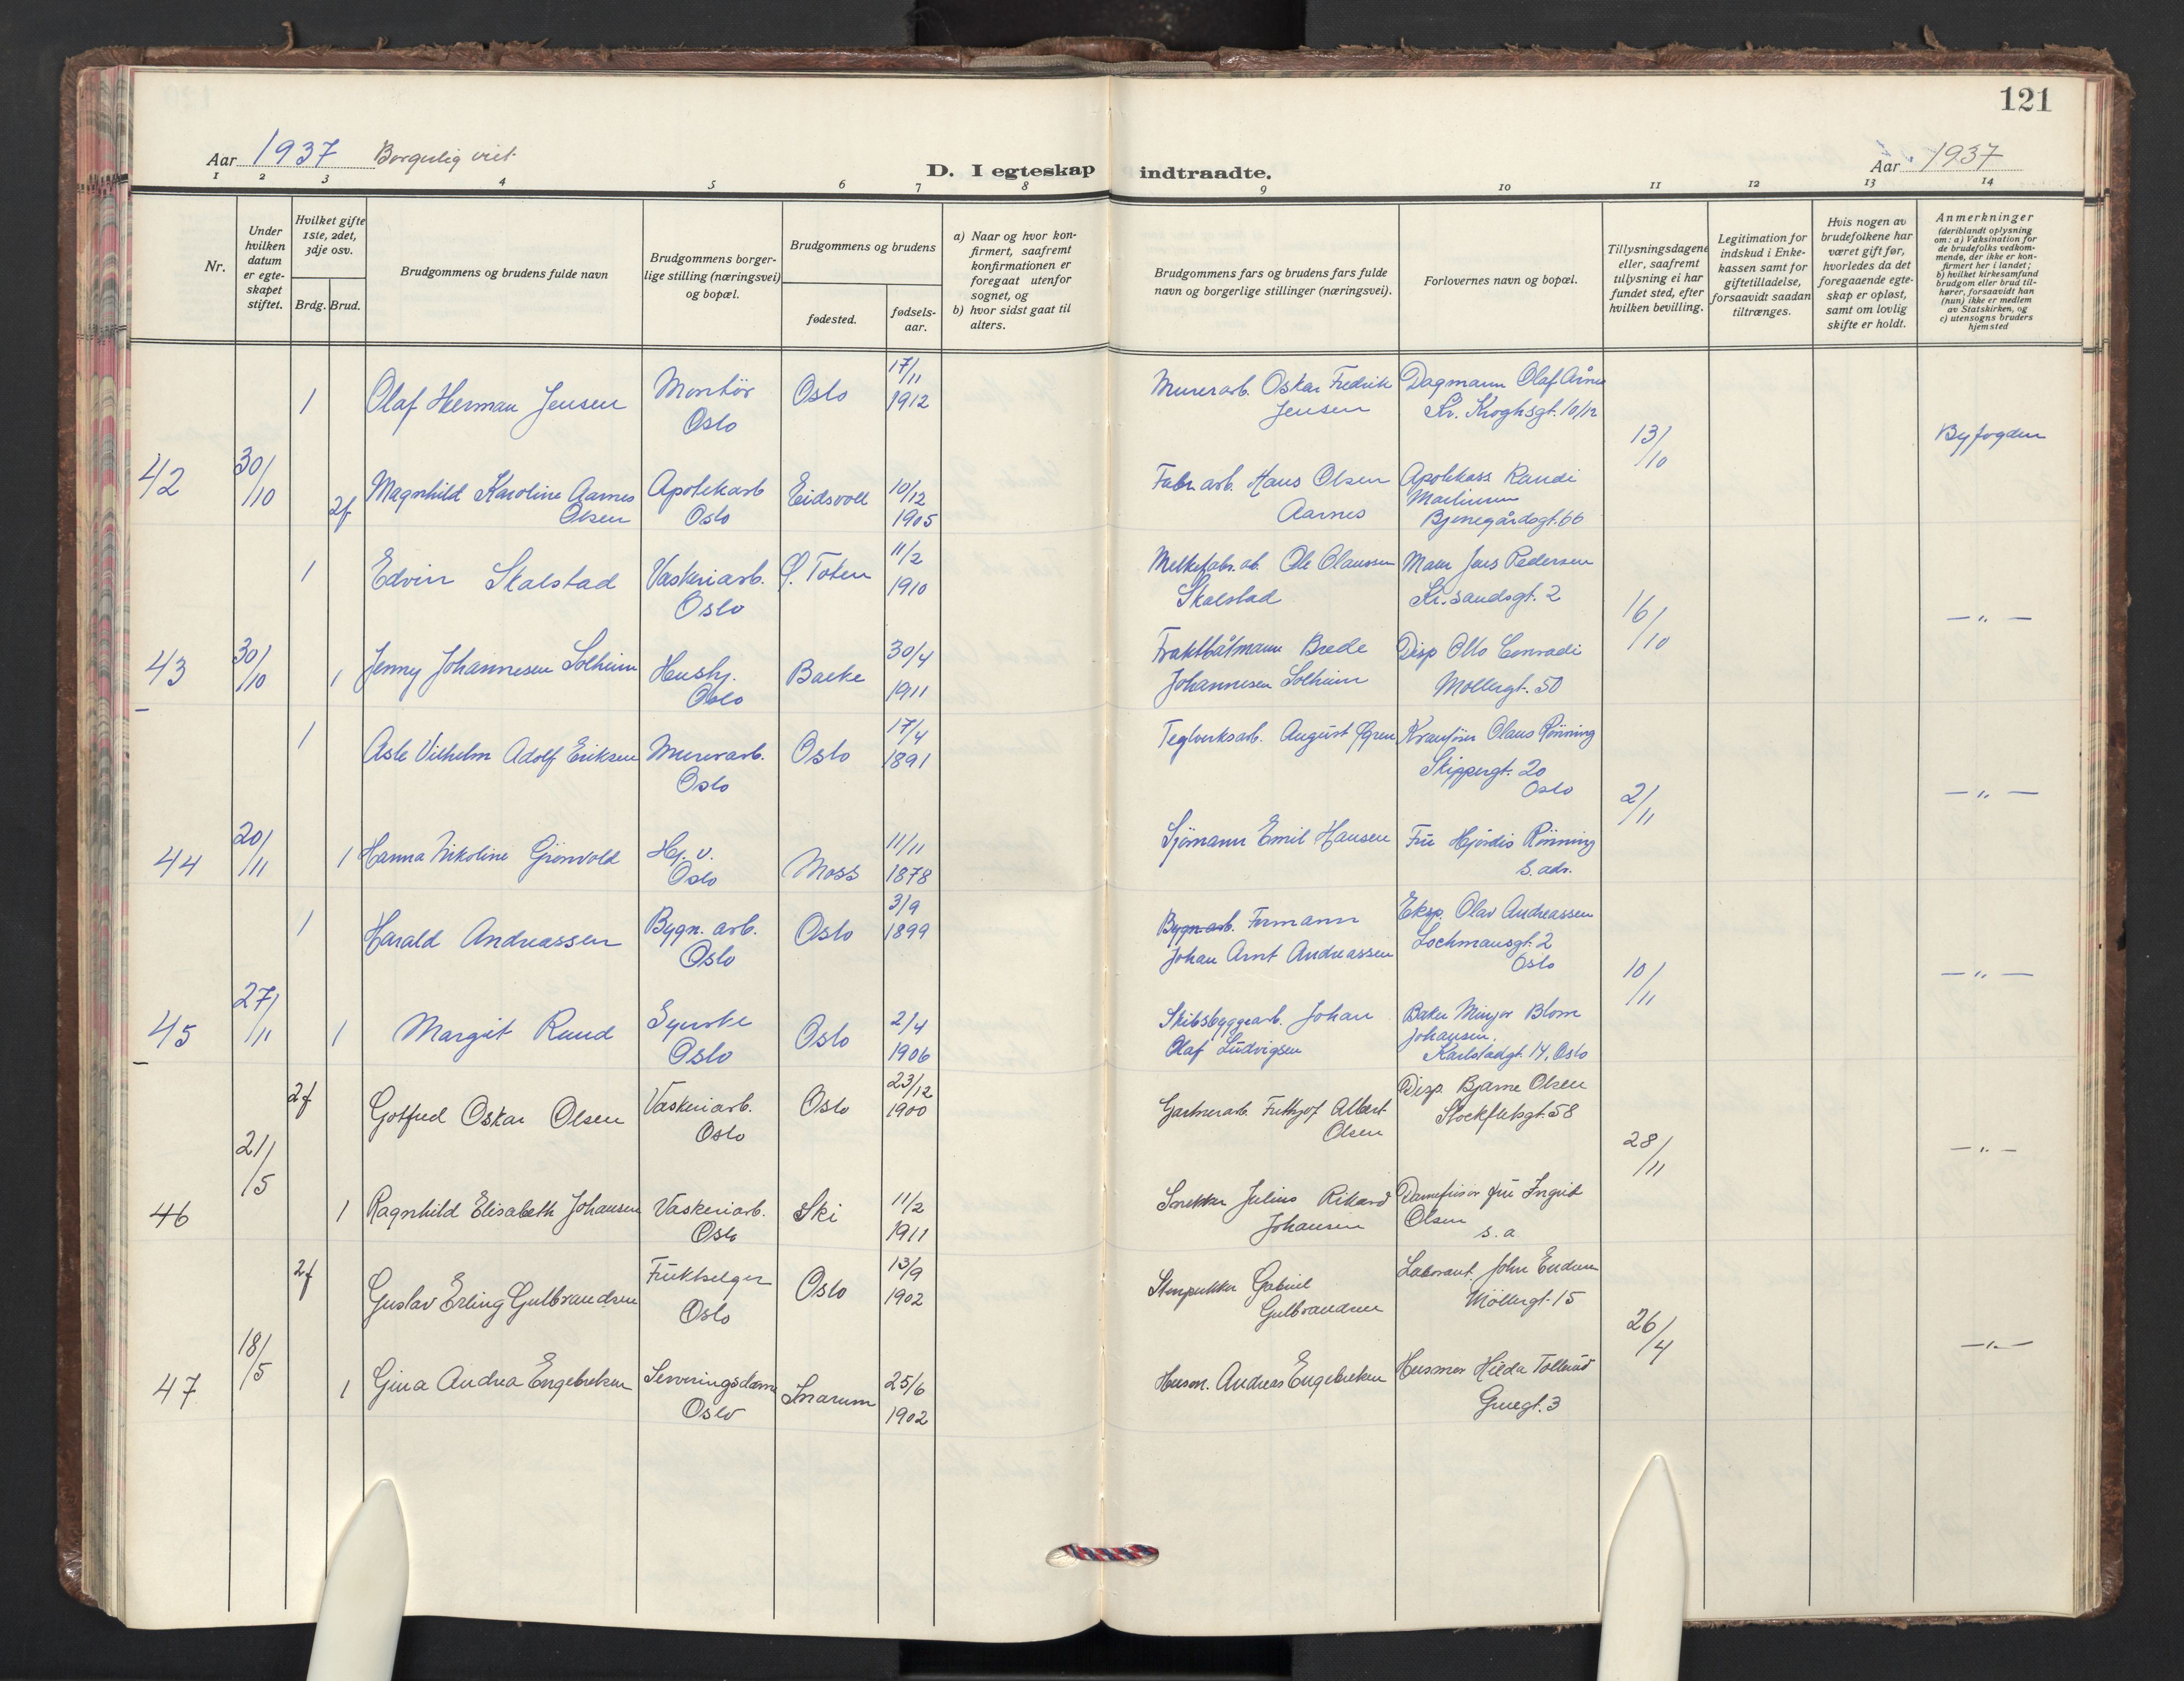 121
Aar 1937 Borgerlig viet
D. I egteskap indtraadte.
Aar 1937
1 2 3 4 5 6 7 8 9 10 11 12 13 14
Nr.
Under
hvilken
datum
er egte-
skapet
stiftet.
Hvilket gifte
1ste, 2det,
3dje osv.
Brdg. Brud.
Brudgommens og brudens fulde navn
Brudgommens borger-
lige stilling (næringsvei)
og bopæl.
Brudgommens og brudens
fødested.
fødsels-
aar.
a) Naar og hvor kon-
firmert, saafremt
konfirmationen er
foregaat utenfor
sognet, og
b) hvor sidst gaat til
alters.
Brudgommens fars og brudens fars fulde
navn og borgerlige stillinger (næringsvei).
Forlovernes navn og bopæl.
Tillysningsdagene
eller, saafremt
tillysning ei har
fundet sted, efter
hvilken bevilling.
Legitimation for
indskud i Enke-
kassen samt for
giftetilladelse,
forsaavidt saadan
tiltrænges.
Hvis nogen av
brudefolkene har
været gift før,
hvorledes da det
foregaaende egte-
skap er opløst,
samt om lovlig
skifte er holdt.
Anmerkninger
(deriblandt oplysning
om: a) Vaksination for
de brudefolks vedkom-
mende, der ikke er kon-
firmert her i landet;
b) hvilket kirkesamfund
brudgom eller brud til-
hører, forsaavidt han
(hun) ikke er medlem
av Statskirken, og
c) utensogns bruders
hjemsted
1 Olaf Herman Jensen Montör Oslo Oslo 17/11 1912
Murerarb. Oskar Fredrik Jensen
Dagmann Olaf Arne
Kr. Kroghsgt. 10/12
13/10
Byfogden
42 30/10 2f Magnhild Karoline Aarnes Olsen Apotekarb Oslo Eidsvoll 10/12 1905
Fabr. arb. Hans Olsen Aarnes
Apotekass Randi
Martinsen
Bjerregårdsgt. 66
1 Edvin Skalstad Vaskeriarb. Oslo Ø. Toten 11/2 1910
Melkefabr. ab. Ole Olaussen Skalstad
Maler Jens Pedersen
Kr.sandsgt. 2
16/10
— " —
43 30/10 1 Jenny Johannesen Solheim Hushj. Oslo Bakke 30/4 1911
Fraktbåtmann Brede Johannesen Solheim
Disp Otto Conradi
Møllergt. 50
1 Asle Vilhelm Adolf Eriksen Murerarb. Oslo Oslo 17/4 1891
Teglverksarb. August Øgren
Kranfører Olaus Rönning
Skippergt. 20
Oslo
2/11
— " —
44 20/11 1 Hanna Nikoline Grönvold Hj. v. Oslo Moss 11/11 1878
Sjömann Emil Hansen
Fru Hjördis Rönning
s. adr.
1 Harald Andreassen Bygn. arb. Oslo Oslo 3/9 1899
Bygn. arb. Formann
Johan Arnt Andreassen
Eksp. Olav Andreassen
Lochmansgt. 2
Oslo
10/11
— " —
45 27/11 1 Margit Ruud Syerske Oslo Oslo 2/4 1906
Skibsbyggerarb. Johan
Olaf Ludvigsen
Baker Blom
Johansen,
Karlstadgt. 14, Oslo
2f Gotfred Oskar Olsen Vaskeriarb. Oslo Oslo 23/12 1900
Gartnerarb. Frithjof Albert Olsen
Disp. Bjarne Olsen
Stockfletsgt. 58
28/11
— " —
46 21/5 1 Ragnhild Elisabeth Johansen Vaskeriarb. Oslo Ski 11/2 1911
Snekker Julius Rikard Johansen
Damefrisør fru Ingrid
Olsen
s. a
2f Gustav Erling Gulbrandsen Fruktselger Oslo Oslo 13/9 1902
Stenpukker Gabriel
Gulbrandsen
Laborant John
Möllergt. 15
26/4
— " —
47 18/5 1 Gina Andrea Engebretsen Serveringsdame Oslo Snarum 25/6 1902
Husm. Andreas Engebretsen
Husmor Hilda Tollerud
Gruegt. 3